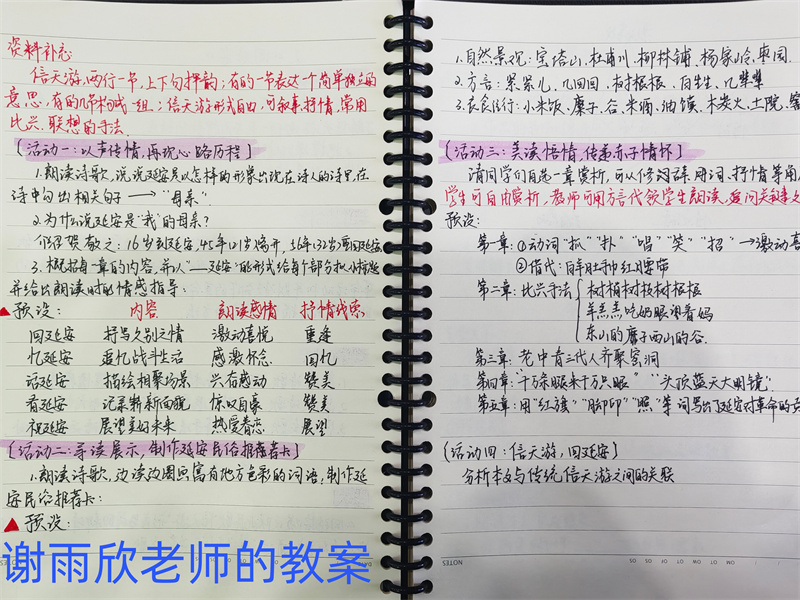 资料补充
信天游,两行一节,上下句押韵;有的一节表达一个简单独立的
意思,有的几节构成一组;信天游形式自由,可叙事抒情,常用
比兴、联想的手法.
[活动一:以声传情,再现心路历程]
1.朗读诗歌,说说延安是以怎样的形象出现在诗人的诗里,在
诗中勾出相关句子→"母亲".
2.为什么说延安是"我"的母亲?
介绍贺敬之:16岁到延安,45年(21岁)离开,56年(32岁)重回延安
3.根据每一章的内容,并以"——延安"的形式给每个部分拟小标题
并给出朗读时的情感指导:
▲预设: 内容 朗读感情 抒情线索
回延安 抒写久别之情 激动喜悦 重逢
忆延安 追忆战斗生活 感激怀念 回忆
话延安 描绘相聚场景 兴奋感动 赞美
看延安 记录新面貌 惊叹自豪 赞美
祝延安 展望美好未来 热爱眷恋 展望
[活动二:导读展示,制作延安民俗推荐卡]
1.朗读诗歌,边读边圈画富有地方色彩的词语,制作延
安民俗推荐卡:
▲预设:
谢雨欣老师的教案
1.自然景观:宝塔山、杜甫川、柳林铺、杨家岭、枣园.
2.方言:羔羔儿、几回回、树根根、白生生、几辈辈
3.衣食住行:小米饭、糜子、谷、米酒、油馍、木炭火、土院、窑
[活动三:美读悟情,传递赤子情怀]
请同学们自选一章赏析,可以修词、用词、抒情等角
学生可自由赏析,教师可用方言代领学生朗读,追问关键
预设:
第一章:①动词"抓""扑""唱""笑""招"→激动喜
②借代:白羊肚手巾红腰带
第二章:比兴手法 树梢树枝树根根
羊羔羔吃奶眼望着妈
东山的糜子西山的谷.
第三章:老中青三代人齐聚窑洞
第四章"千万条腿来千万只眼" "头顶蓝天大明镜"
第五章:用"红旗""脚印""照"等词写出了延安对革命的
[活动四:信天游,回延安]
分析本文与传统信天游之间的关联
NOTES